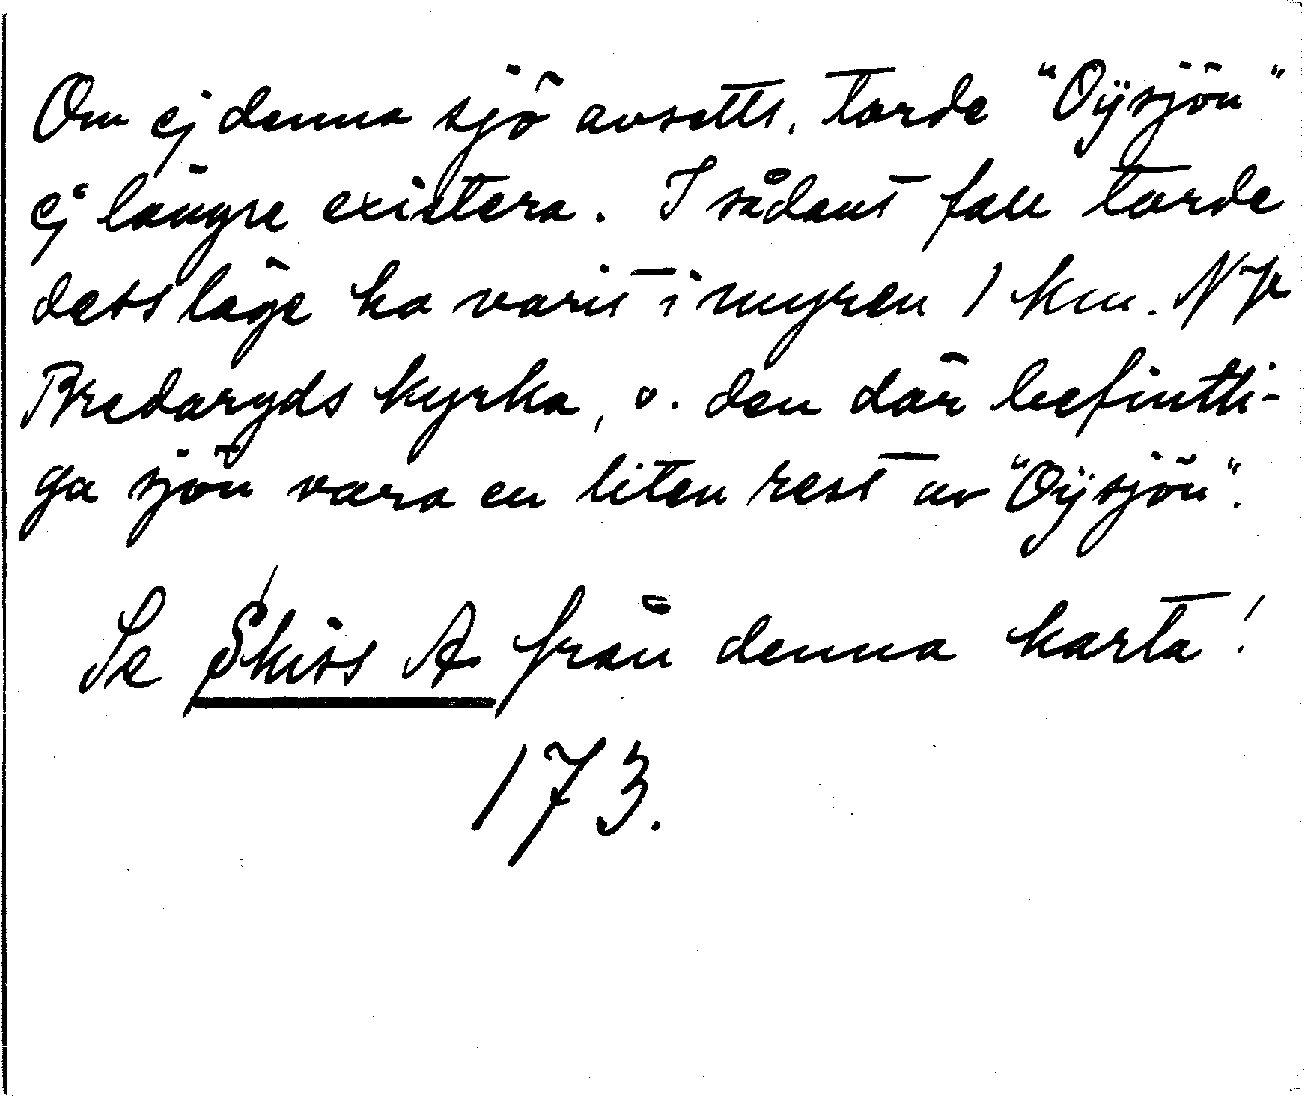 Om ej denna sjö avsetts, torde "Oÿsjön"
ej längre existera. I sådant fall torde
dess läge ha varit i myren 1 km. N fr
Bredaryds kyrka, o. den där befintli-
ga sjön vara en liten rest av "Oÿsjön".
Se Skiss A från denna karta!
173.